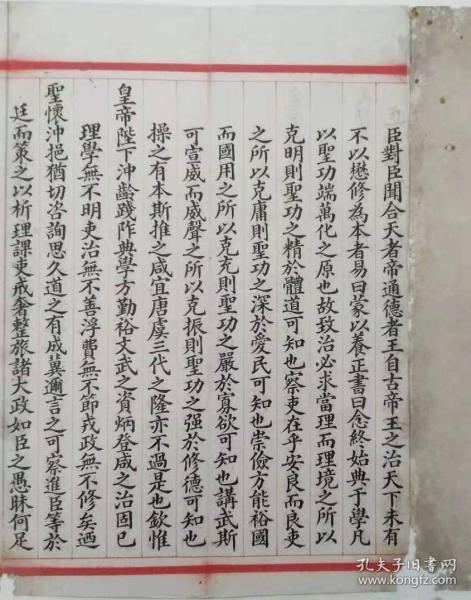 臣對臣聞合天者帝通德者王自古帝王之治天下未有
不以懋修為本者易曰蒙以養正書曰念終始典于學凡
以聖功端萬化之原也故致治必求當理而理境之所以
克明則聖功之精於體道可知也察吏在乎安良而良吏
之所以克庸則聖功之深於愛民可知也崇儉方能裕國
而國用之所以克充則聖功之嚴於寡欲可知也講武斯
可宣威而威聲之所以克振則聖功之强於修德可知也
操之有本斯推之咸宜唐虞三代之隆亦不過是也欽惟
皇帝陛下沖齡踐阼典學方勤裕文武之資炳登咸之治固已
理學無不明吏治無不善浮費無不節戎政無不修矣迺
聖懷沖挹猶切咨詢思久道之有成冀邇言之可察進臣等於
廷而策之以析理課吏戒奢整旅諸大政如臣之愚昧何足
孔夫子旧书网
www.kongfz.com